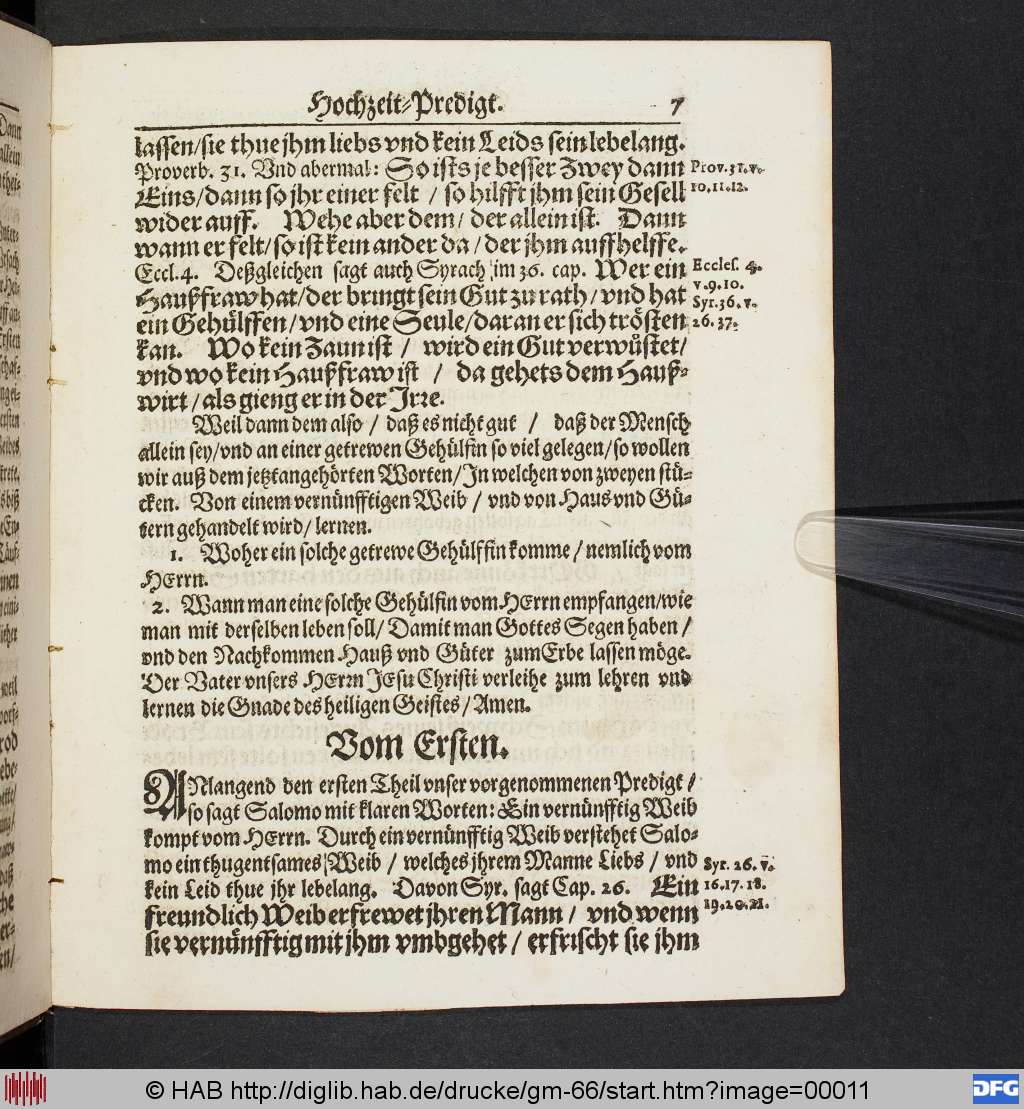 Hochzeit-Predigt. 7
lassen/sie thue jhm liebs vnd kein Leids sein lebelang.
Proverb. 31. Vnd abermal: So ists je besser Zwey dann
Eins/dann so jhr einer felt / so hilfft jhm sein Gesell
wider auff. Wehe aber dem/ der allein ist. Dann
wann er felt/so ist kein ander da/der jhm auffhelffe.
Eccl.4. Deßgleichen sagt auch Syrach im 36. cap. Wer ein
Haußfraw hat/der bringt sein Gut zu rath/vnd hat
ein Gehülffen/vnd eine Seule/daran er sich trösten
kan. Wo kein Zaun ist / wird ein Gut verwüstet/
vnd wo kein Haußfraw ist / da gehets dem Hauß-
wirt/als gieng er in der Irre.
Prov.31.v.
10.11.12.
Eccles. 4.
v.9.10.
Syr.36.v.
26.27.
Weil dann dem also / daß es nicht gut / daß der Mensch
allein sey/vnd an einer getrewen Gehülfin so viel gelegen/so wollen
wir auß dem jetztangehörten Worten/In welchen von zweyen stü-
cken. Von einem vernünfftigen Weib / vnd von Haus vnd Gü-
tern gehandelt wird/lernen.
1. Woher ein solche getrewe Gehülffin komme/nemlich vom
HErrn.
2. Wann man eine solche Gehülfin vom HErrn empfangen/wie
man mit derselben leben soll/Damit man Gottes Segen haben/
vnd den Nachkommen Hauß vnd Güter zum Erbe lassen möge.
Der Vater vnsers HErrn JEsu Christi verleihe zum lehren vnd
lernen die Gnade des heiligen Geistes/Amen.
Vom Ersten.
ANlangend den ersten Theil vnser vorgenommenen Predigt /
so sagt Salomo mit klaren Worten: Ein vernünfftig Weib
kompt vom HErrn. Durch ein vernünfftig Weib verstehet Salo-
mo ein thugentsames Weib / welches jhrem Manne Liebs / vnd
kein Leid thue jhr lebelang. Davon Syr. sagt Cap. 26. Ein
freundlich Weib erfrewet jhren Mann / vnd wenn
sie vernünfftig mit jhm vmbgehet / erfrischt sie jhm
Syr. 26. v.
16.17.18.
19.20.21.
© HAB http://diglib.hab.de/drucke/gm-66/start.htm?image=00011
DFG